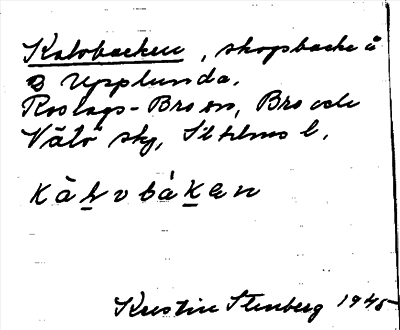 Kalvbacken, skogsbacke å
Upplunda.
Roslags-Bro sn, Bro och
Vätö skg, Sthlms l.
kàlvbàken
Kerstin Stenberg 1945